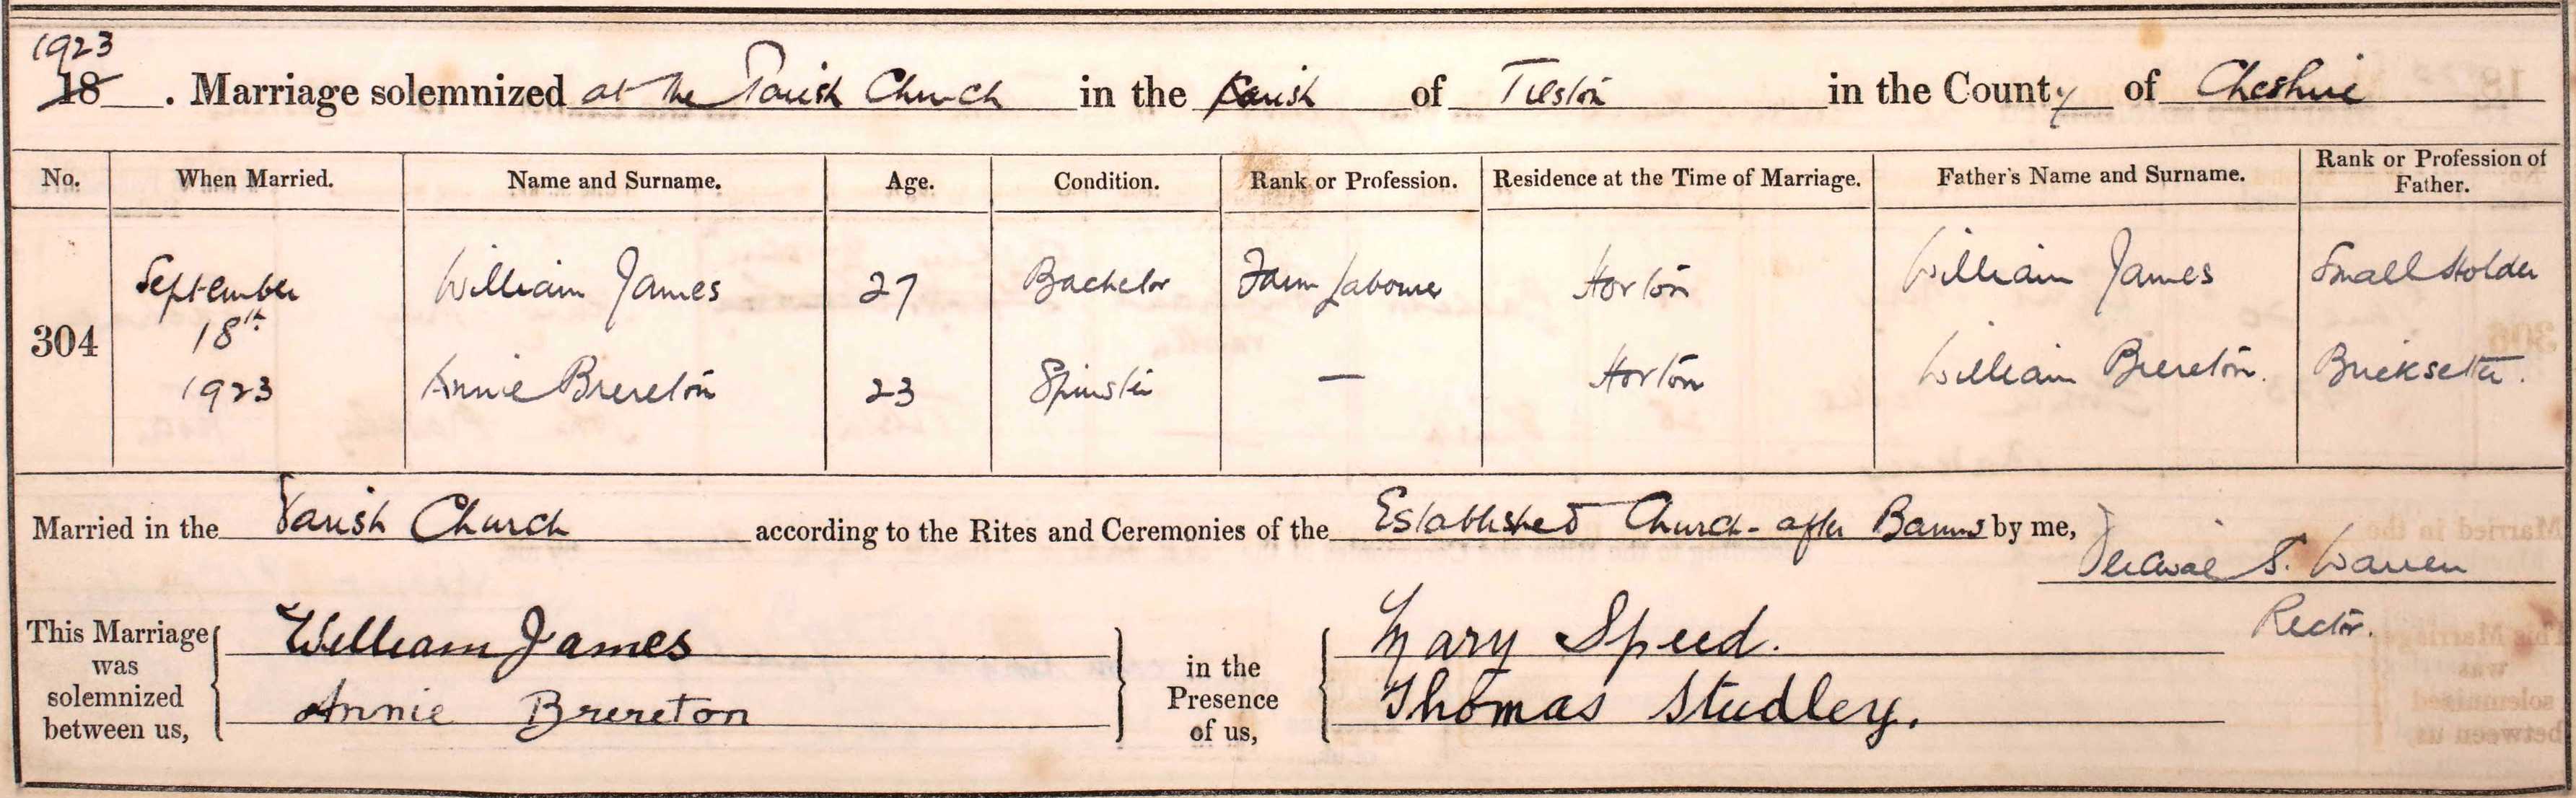 1923
18 . Marriage solemnized at the Parish Church in the Parish of Tilston in the County of Cheshire
No. When Married. Name and Surname. Age. Condition. Rank or Profession. Residence at the Time of Marriage. Father's Name and Surname. Rank or Profession of Father.
304
September 18th 1923
William James 27 Bachelor Farm Labourer Horton William James Small Holder
Annie Brereton 23 Spinster — Horton William Brereton. Bricksetter.
Married in the Parish Church according to the Rites and Ceremonies of the Established Church - after Banns by me,
Percival S. Warren
Rector.
This Marriage was solemnized between us,
William James
Annie Brereton
in the Presence of us,
Mary Speed.
Thomas Studley.